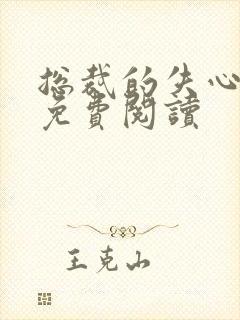 总裁的失心
免費閱讀
王克山